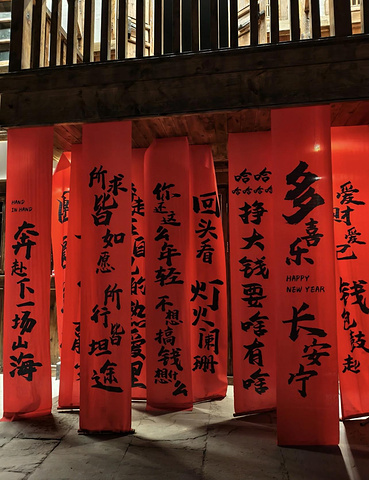 HAND
IN HAND
奔赴下一场山海
所求皆如愿
所行皆坦途
你还这么年轻
不想搞钱想什么
回头看
灯火阑珊
哈哈
哈哈哈哈
挣大钱要啥有啥
多喜乐
HAPPY
NEW YEAR
长安宁
爱财爱己
钱包鼓起